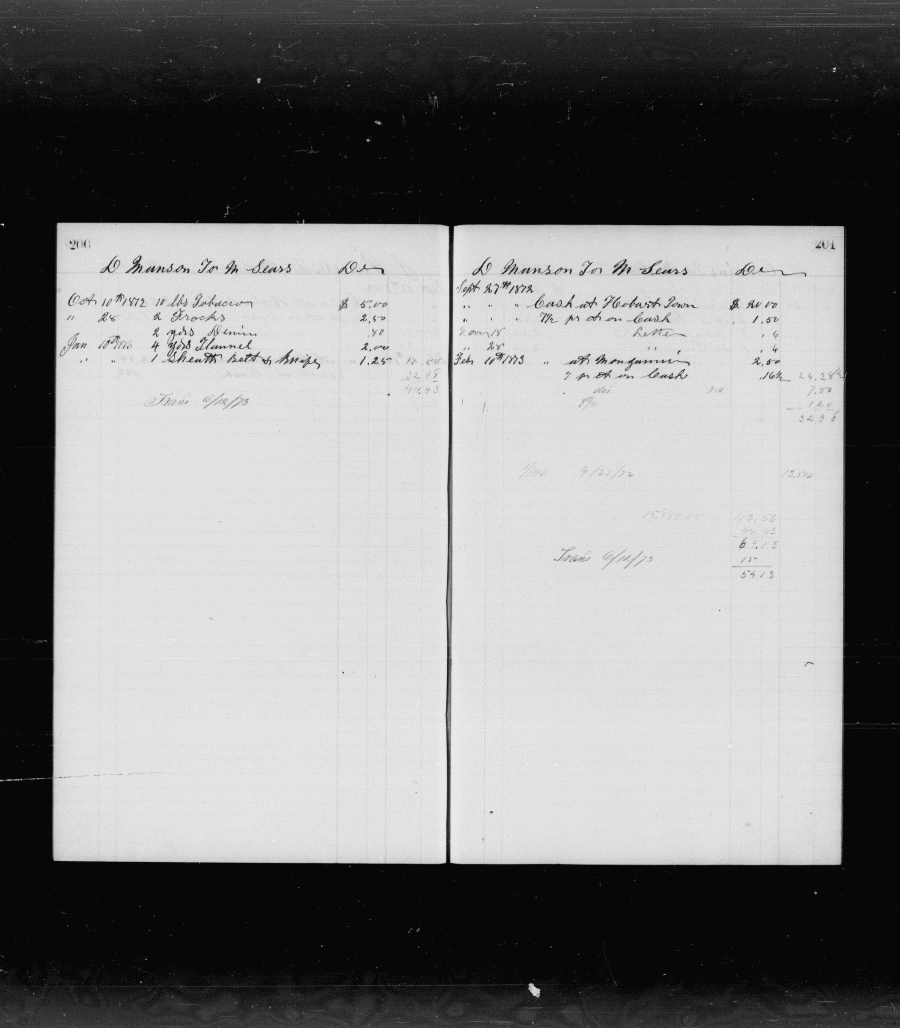 200
D Munson To M Sears Dr
Oct 10th 1872 10 lbs Tobacco $ 5.00
" 28 2 Frocks 2,50
2 yds Denim 80
Jan 10th 4 yds Flannel 2,00
" " 1 Sheath Belt & Knife 1.25
32.98
44,43
Trans 6/12/73
201
D Munson To M Sears Dr
Sept 27th 1872
" " " Cash at Hobart Town $ 20 00
" " " 7½ pr ct on Cash 1,50
18 Letter , 6
" 28 " , 6
Feb 10th 1873 " at 2,50
7 pr ct on Cash .16½ 24,28½
7.50
1 20
32.98
9/23/72
44.43
63.13
Trans 6/12/73 15
54 13